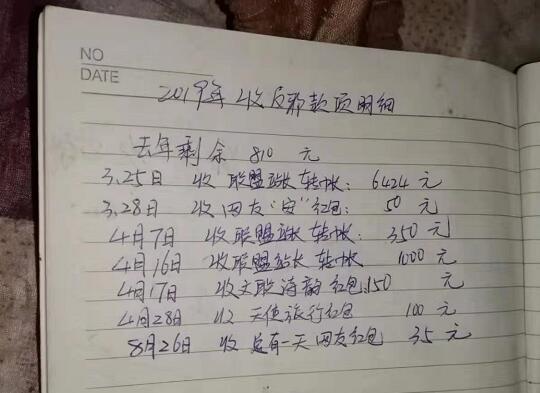 NO
DATE
2019年 收反邪款项明细
去年剩余 810 元
3.25日 收 联盟站长 转帐: 6424 元
3.28日 收 网友"安"红包: 50 元
4月7日 收联盟站长 转帐: 350 元
4月16日 收联盟站长 转帐 1000 元
4月17日 收文联海韵红包:150 元
4月28日 收 天使旅行红包 100 元
8月26日 收 总有一天 网友红包 35 元